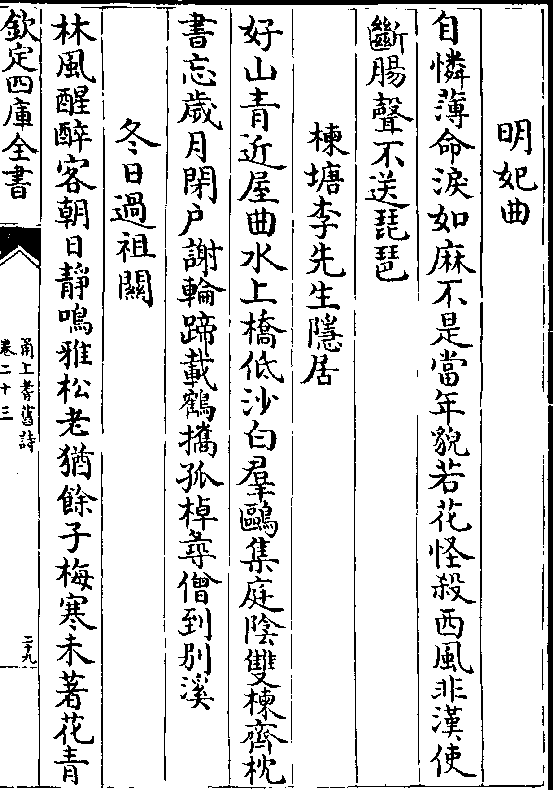 明妃曲
自憐薄命淚如麻不是當年貌若花怪殺西風非漢使
斷腸聲不送琵琶
楝塘李先生隱居
好山青近屋曲水上橋低沙白羣鷗集庭陰雙楝齊枕
書忘歲月閉户謝輪蹄載鶴攜孤棹尋僧到别溪
冬日過祖關
林風醒醉客朝日靜鳴雅松老猶餘子梅寒未著花青
欽定四庫全書
甬上耆舊詩
卷二十三
二十九